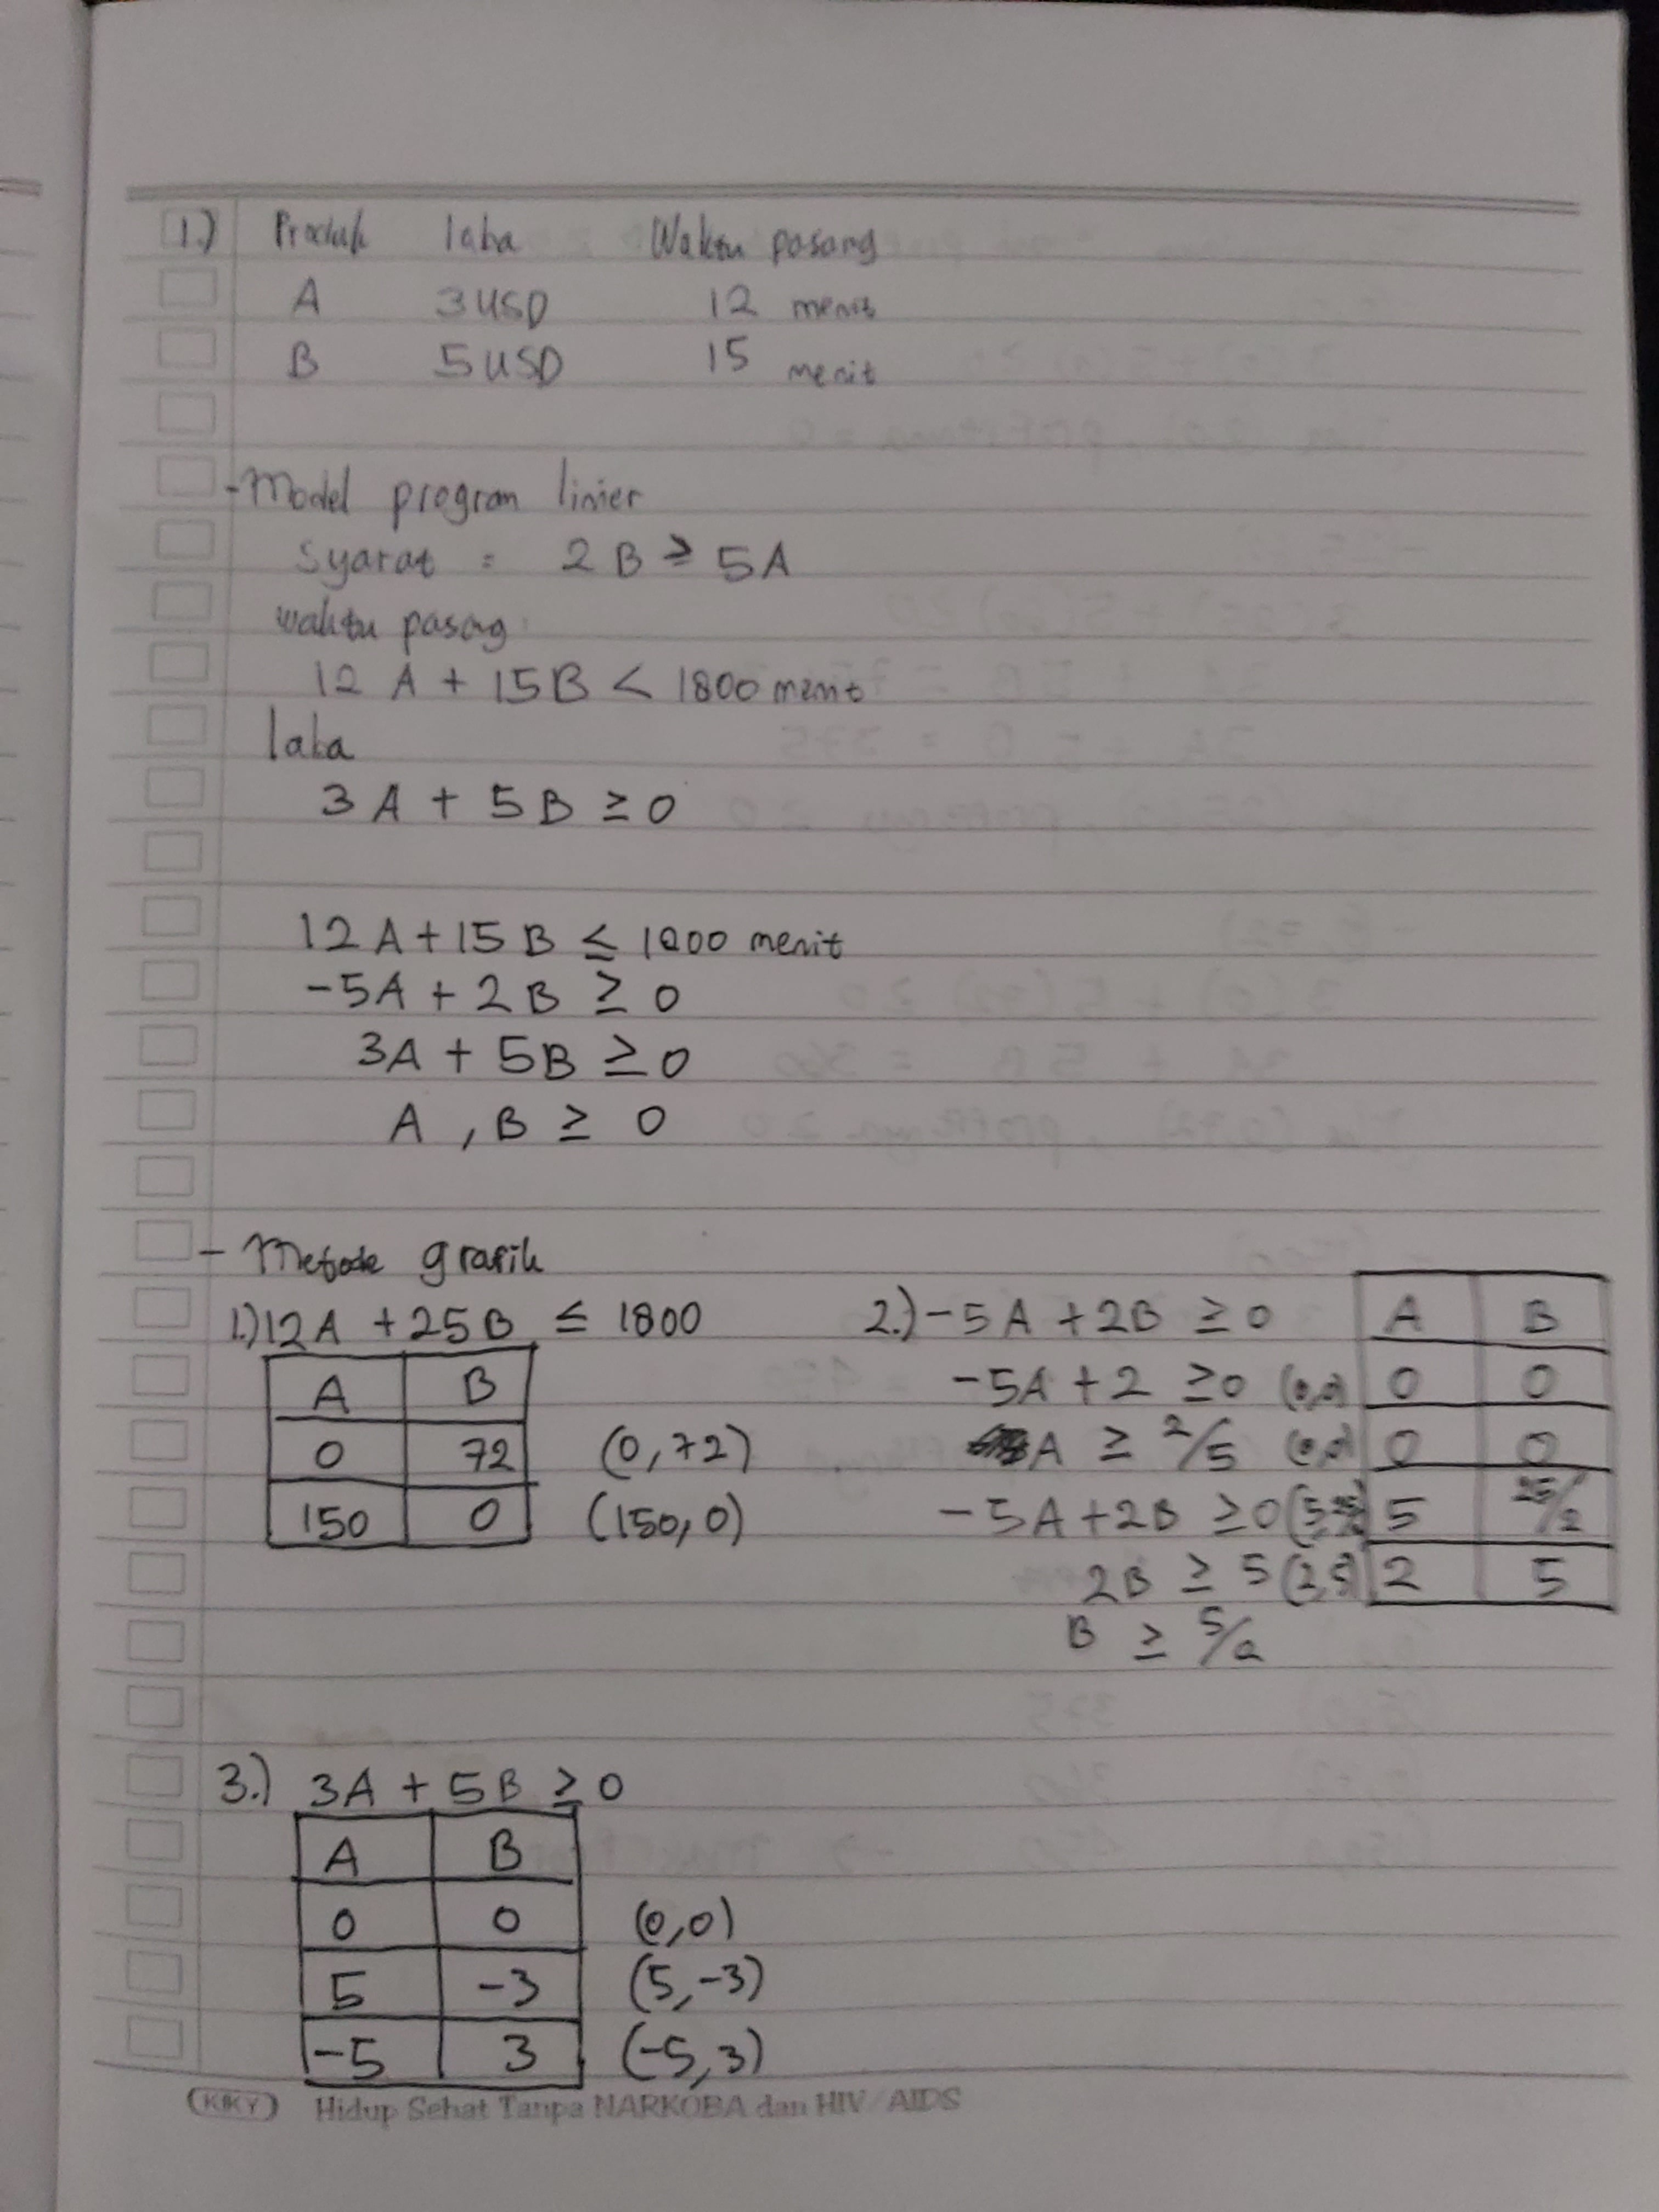 1.) Produk laba Waktu pasang
A 3 USD 12 menit
B 5 USD 15 menit
- Model program linier
Syarat = 2B ≥ 5A
waktu pasang
12 A + 15 B < 1800 menit
laba
3 A + 5 B ≥ 0
12 A + 15 B ≤ 1800 menit
-5A + 2B ≥ 0
3A + 5B ≥ 0
A , B ≥ 0
- Metode grafik
1.) 12 A + 25 B ≤ 1800
A B
0 72 (0,72)
150 0 (150,0)
2.) -5 A + 2B ≥ 0 A B
-5A + 2 ≥ 0 (0,0) 0 0
A ≥ 2/5 (0,0) 0 0
-5A + 2B ≥ 0 5 25/2
2B ≥ 5 (2,5) 2 5
B ≥ 5/2
3.) 3A + 5B ≥ 0
A B
0 0 (0,0)
5 -3 (5,-3)
-5 3 (-5,3)
KIKY Hidup Sehat Tanpa NARKOBA dan HIV/AIDS